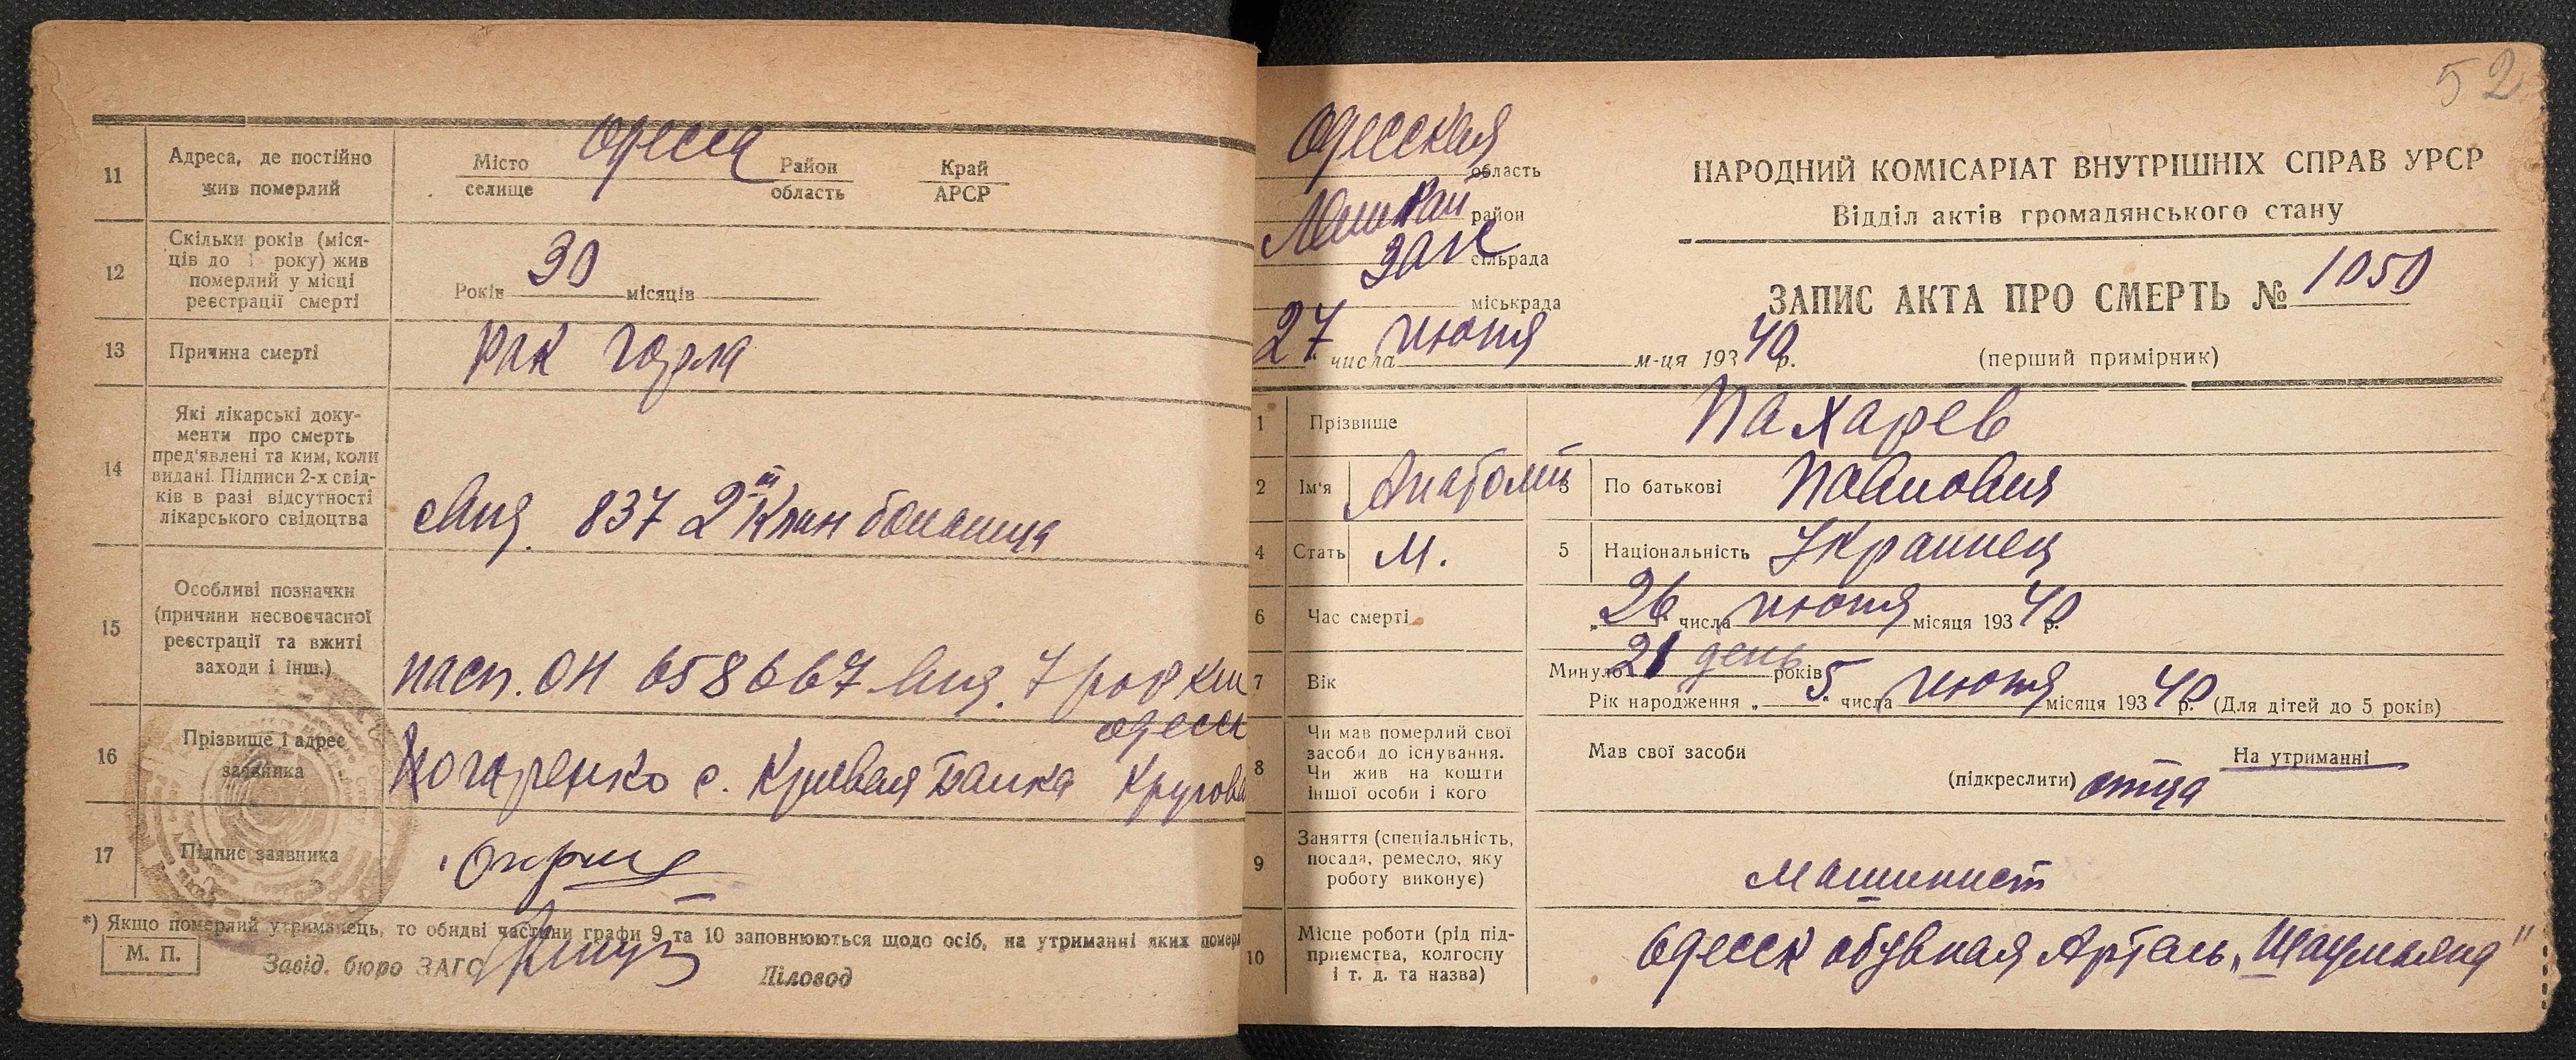 11
Адреса, де постійно
жив померлий
Місто
селище
Одесса
Район
область
Край
АРСР
12
Скільки років (міся-
ців до 1 року) жив
померлий у місці
реєстрації смерті
Років 30 місяців
13
Причина смерті
Рак горла
14
Які лікарські доку-
менти про смерть
пред'явлені та ким, коли
видані. Підписи 2-х свід-
ків в разі відсутності
лікарського свідоцтва
837 2й Клин больница
15
Особливі позначки
(причини несвоєчасної
реєстрації та вжиті
заходи і інш.)
пасп. ОН 658667 выд. 7
16
Прізвище і адрес
заявника
с. Кривая Балка
17
Підпис заявника
*) Якщо померлий утриманець, то обидві частини графи 9 та 10 заповнюються щодо осіб, на утриманні яких
М. П.
Завід. бюро ЗАГС
Діловод
52
Одесская
область
район
ЗАГС
сільрада
міськрада
27 " числа июня м-ця 193 40 р.
НАРОДНИЙ КОМІСАРІАТ ВНУТРІШНІХ СПРАВ УРСР
Відділ актів громадянського стану
ЗАПИС АКТА ПРО СМЕРТЬ № 1050
(перший примірник)
1
Прізвище
Пахарев
2
Ім'я
Анатолий
3
По батькові
Павлович
4
Стать
М.
5
Національність
Украинец
6
Час смерті
„ 26 " числа июня місяця 193 40 р.
7
Вік
Минуло 21 день років
Рік народження „ 5 " числа июня місяця 193 40 р. (Для дітей до 5 років)
8
Чи мав померлий свої
засоби до існування.
Чи жив на кошти
іншої особи і кого
Мав свої засоби
На утриманні
(підкреслити) отца
9
Заняття (спеціальність,
посада, ремесло, яку
роботу виконує)
Машинист
10
Місце роботи (рід під-
приємства, колгоспу
і т. д. та назва)
Одесск обувная Артель „Шаумяна"